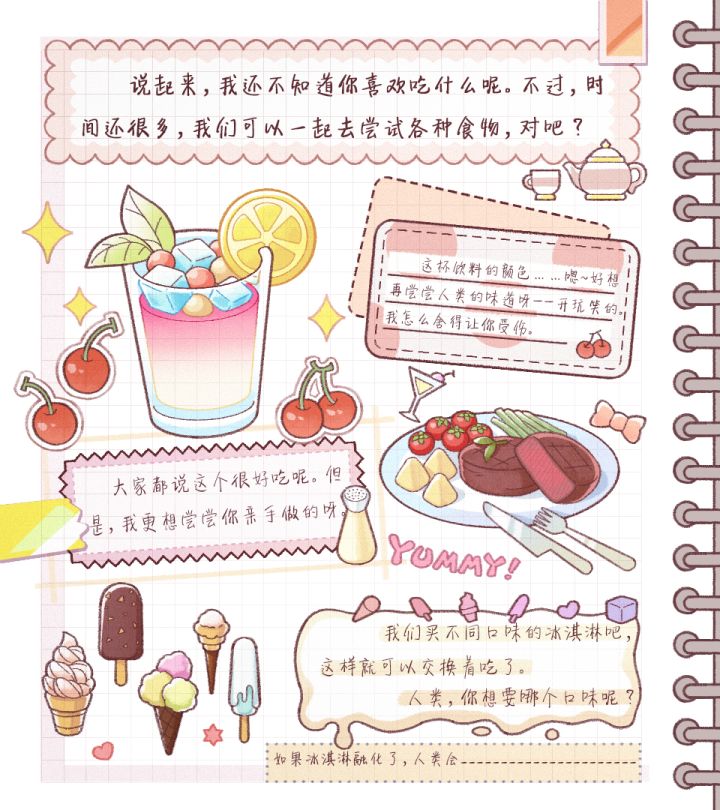 说起来，我还不知道你喜欢吃什么呢。不过，时
间还很多，我们可以一起去尝试各种食物，对吧？
这杯饮料的颜色……嗯~好想
再尝尝人类的味道呀——开玩笑的。
我怎么舍得让你受伤。
大家都说这个很好吃呢。但
是，我更想尝尝你亲手做的呀。
YUMMY!
我们买不同口味的冰淇淋吧，
这样就可以交换着吃了。
人类，你想要哪个口味呢？
如果冰淇淋融化了，人类会----------------